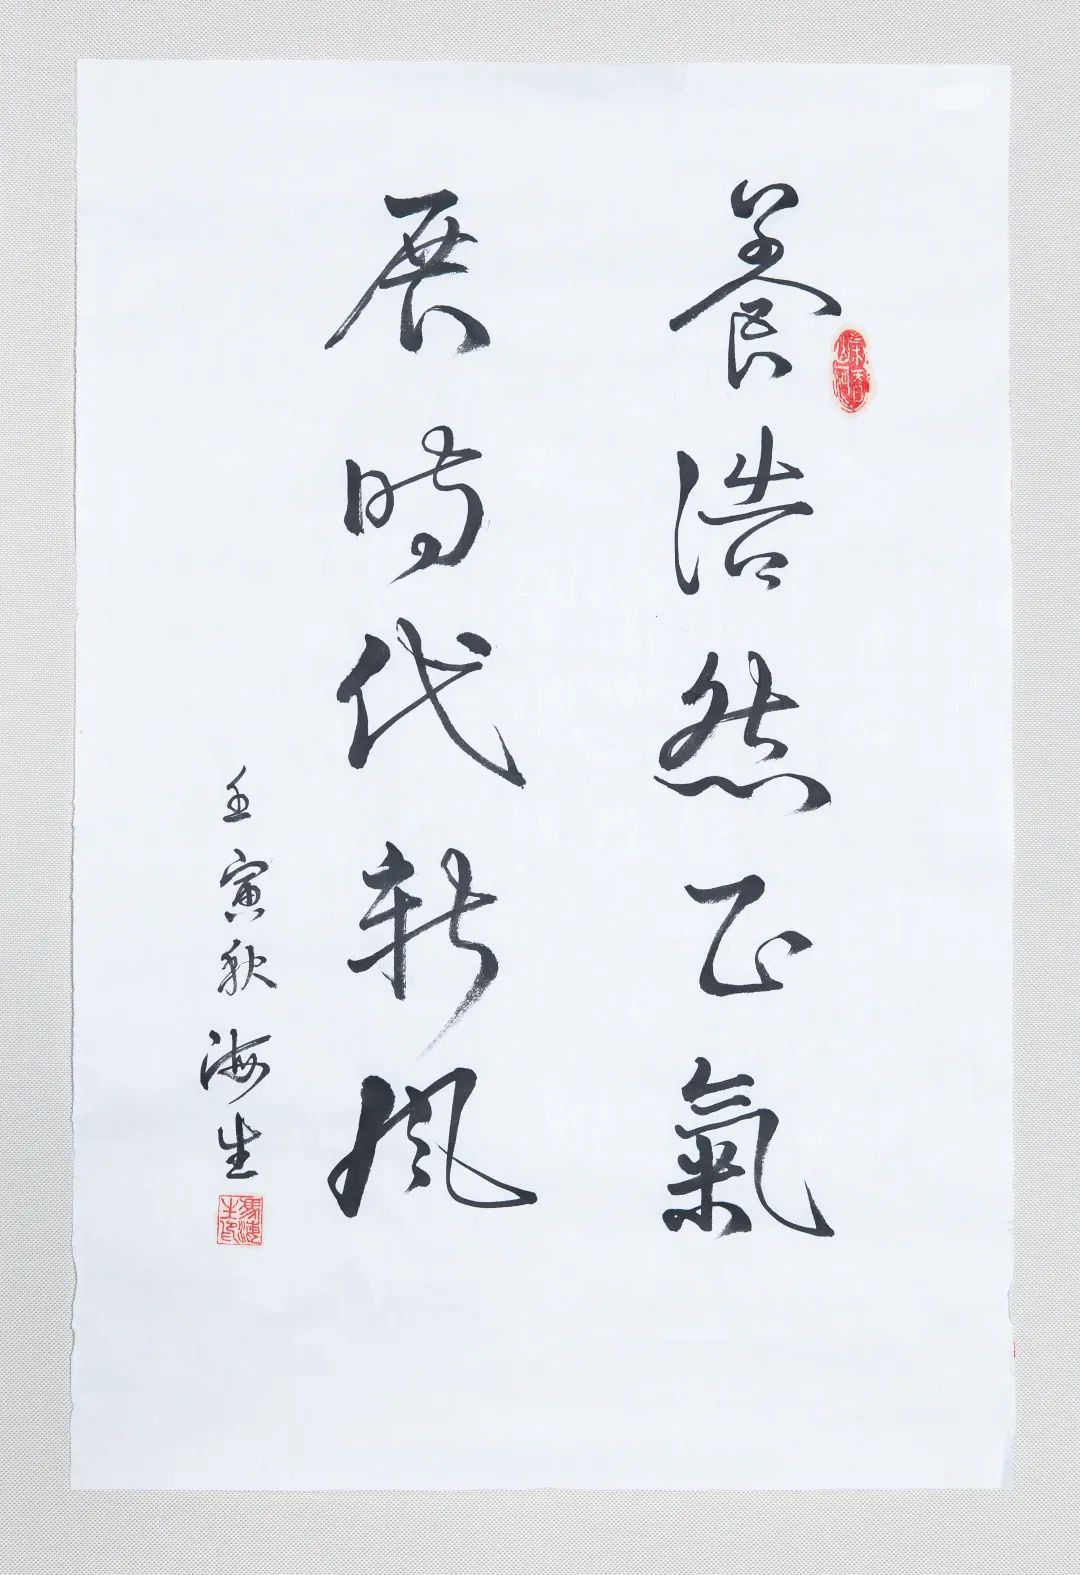 養浩然正氣
展時代新風
壬寅秋海生